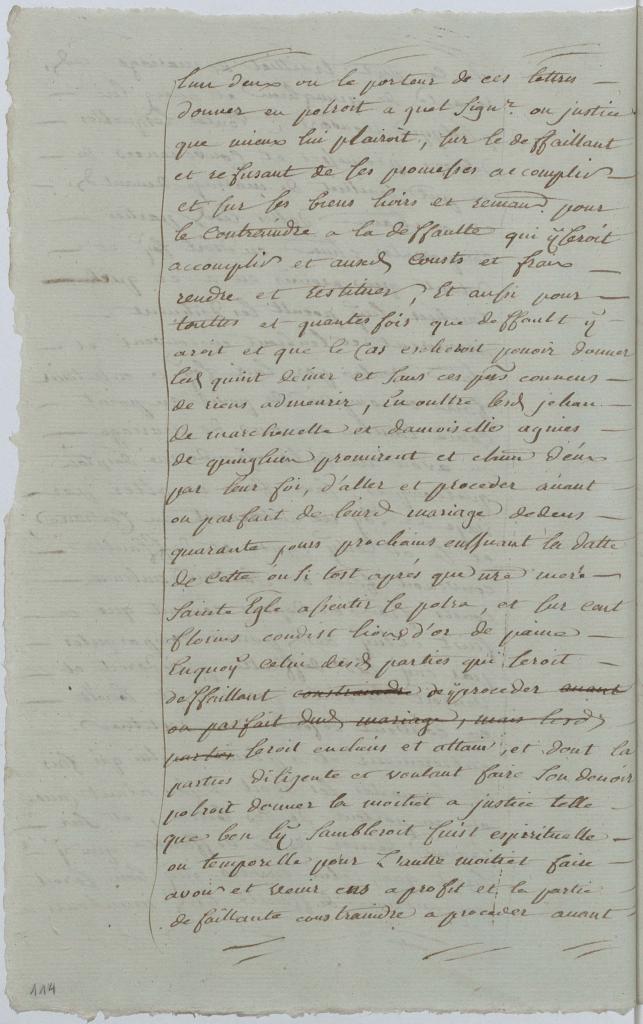 l'un deux ou le porteur de ces lettres —
donner en polroit a quel Sign.r ou justice
que mieux lui plairoit, sur le deffaillant
et refusant de ses promesses accomplir —
et sur ses biens hoirs et reman.d pour
le contraindre a la deffaulte qui ÿ seroit
accomplir et ausd. cousts et fraix —
rendre et restituer, Et aussi pour —
touttes et quantes fois que deffault ÿ
aroit et que le cas escheroit pouoir donner
led. quint denier et sans ces pñs convens —
de riens admenrir, En oultre lesd. jehan
de marchenelle et damoiselle agnies —
de quinghien promirent et chũn d'eux
par leur foi, d'aller et proceder avant —
ou parfait de leurd. mariage dedens —
quarante jours prochains ensuivant la datte
de cette ou si tost aprés que nre mere —
Sainte Egle assentir le polra, et sur cent
florins condist lion d'or de paine —
Enquoÿ celui desd. parties qui seroit —
deffaillant constraindre deÿproceder avant
ou parfait dud. mariage, mais lesd.
parties seroit encheus et attaint, et dont la
parties diligente et voulant faire son devoir
polroit donner la moitiet a justice telle —
que bon lÿ sambleroit fuist espirituelle —
ou temporelle pour L'autre moitiet faire —
avoir et venir ens a profit et la partie
defaillante constraindre a proceder avant
114